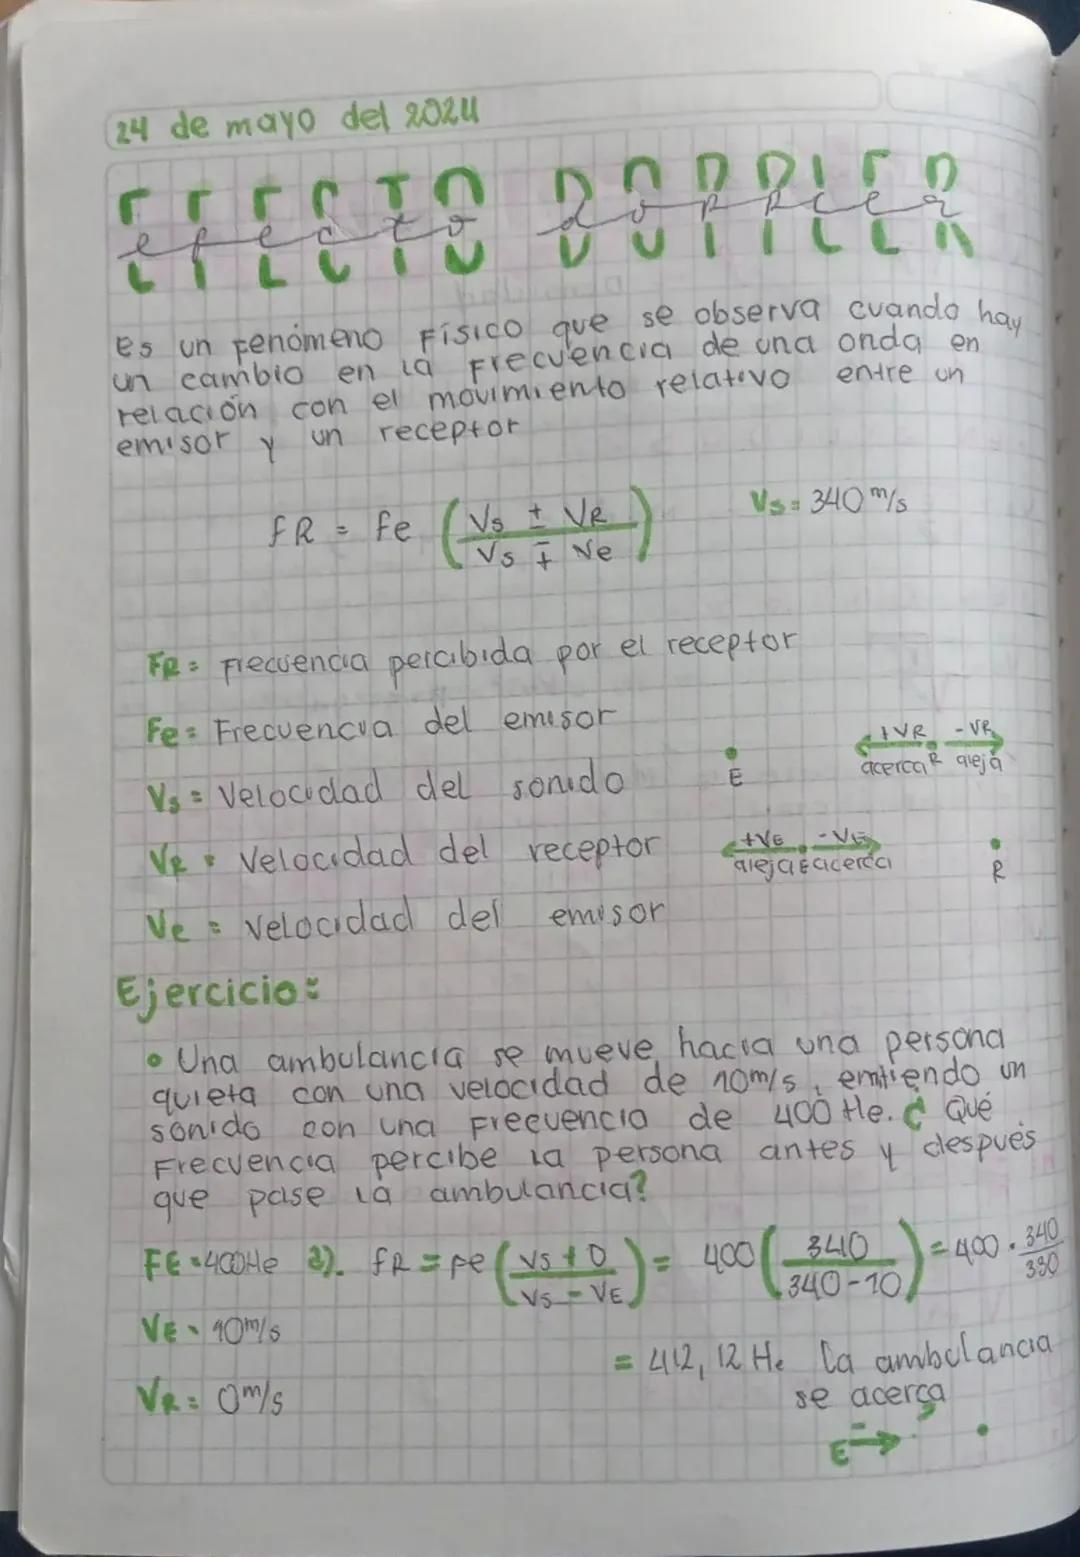 24 de mayo del 2024
efecto doppler
Es un fenómeno Físico que se observa cuando hay
un cambio en la Frecuencia de una onda en
relación con el movimiento relativo entre un
emisor y un receptor
fR = fe (Vs ± VR / Vs ∓ Ve) Vs = 340 m/s
FR = Frecuencia percibida por el receptor
Fe = Frecuencia del emisor
+VR -VR
acerca R aleja
E
Vs = Velocidad del sonido
VR = Velocidad del receptor
+VE -VE
aleja E acerca
R
Ve = Velocidad del emisor
Ejercicio:
• Una ambulancia se mueve hacia una persona
quieta con una velocidad de 10m/s, emitiendo un
sonido con una Frecuencia de 400 He. ¿Qué
Frecuencia percibe la persona antes y después
que pase la ambulancia?
FE = 400He a). fR = fe (Vs + 0 / Vs - VE) = 400 (340 / 340-10) = 400 · 340/330
VE = 10m/s
= 412,12 He La ambulancia
VR = 0m/s
se acerca
E → -